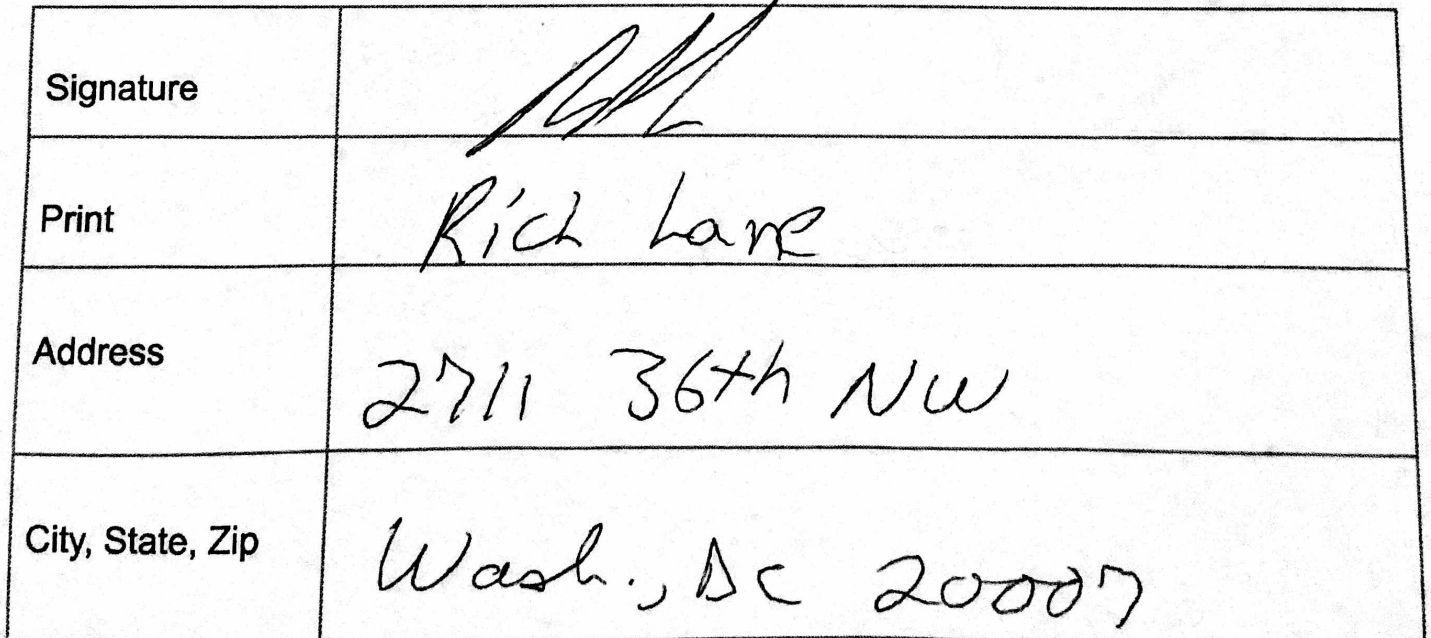 Signature
Print Rich Lane
Address 2711 36th NW
City, State, Zip Wash., DC 20007